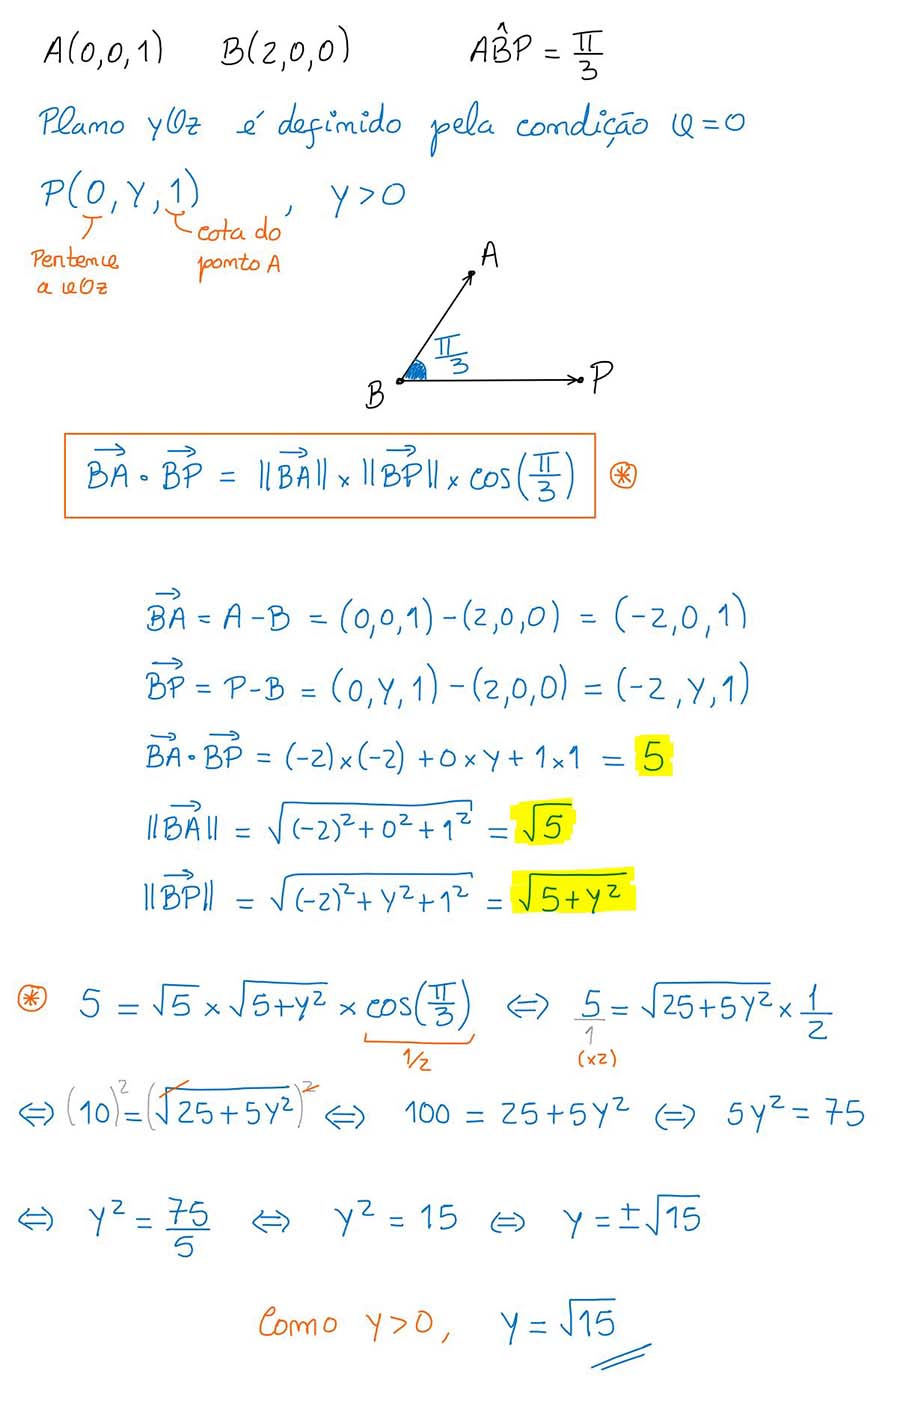 A(0,0,1) B(2,0,0) AB̂P = π/3
Plano yOz é definido pela condição x=0
P(0,Y,1) , Y>0
Pertence a xOz
cota do ponto A
A
π/3
B
P
BA⃗ · BP⃗ = ||BA⃗|| × ||BP⃗|| × cos(π/3) ⊛
BA⃗ = A-B = (0,0,1)-(2,0,0) = (-2,0,1)
BP⃗ = P-B = (0,Y,1)-(2,0,0) = (-2,Y,1)
BA⃗ · BP⃗ = (-2)×(-2)+0×Y+1×1 = 5
||BA⃗|| = √((-2)²+0²+1²) = √5
||BP⃗|| = √((-2)²+Y²+1²) = √(5+Y²)
⊛ 5 = √5 × √(5+Y²) × cos(π/3) ⇔ 5/1 = √(25+5Y²) × 1/2
1/2 (×2)
⇔ (10)² = (√(25+5Y²))² ⇔ 100 = 25+5Y² ⇔ 5Y² = 75
⇔ Y² = 75/5 ⇔ Y² = 15 ⇔ Y = ±√15
Como Y>0, Y = √15